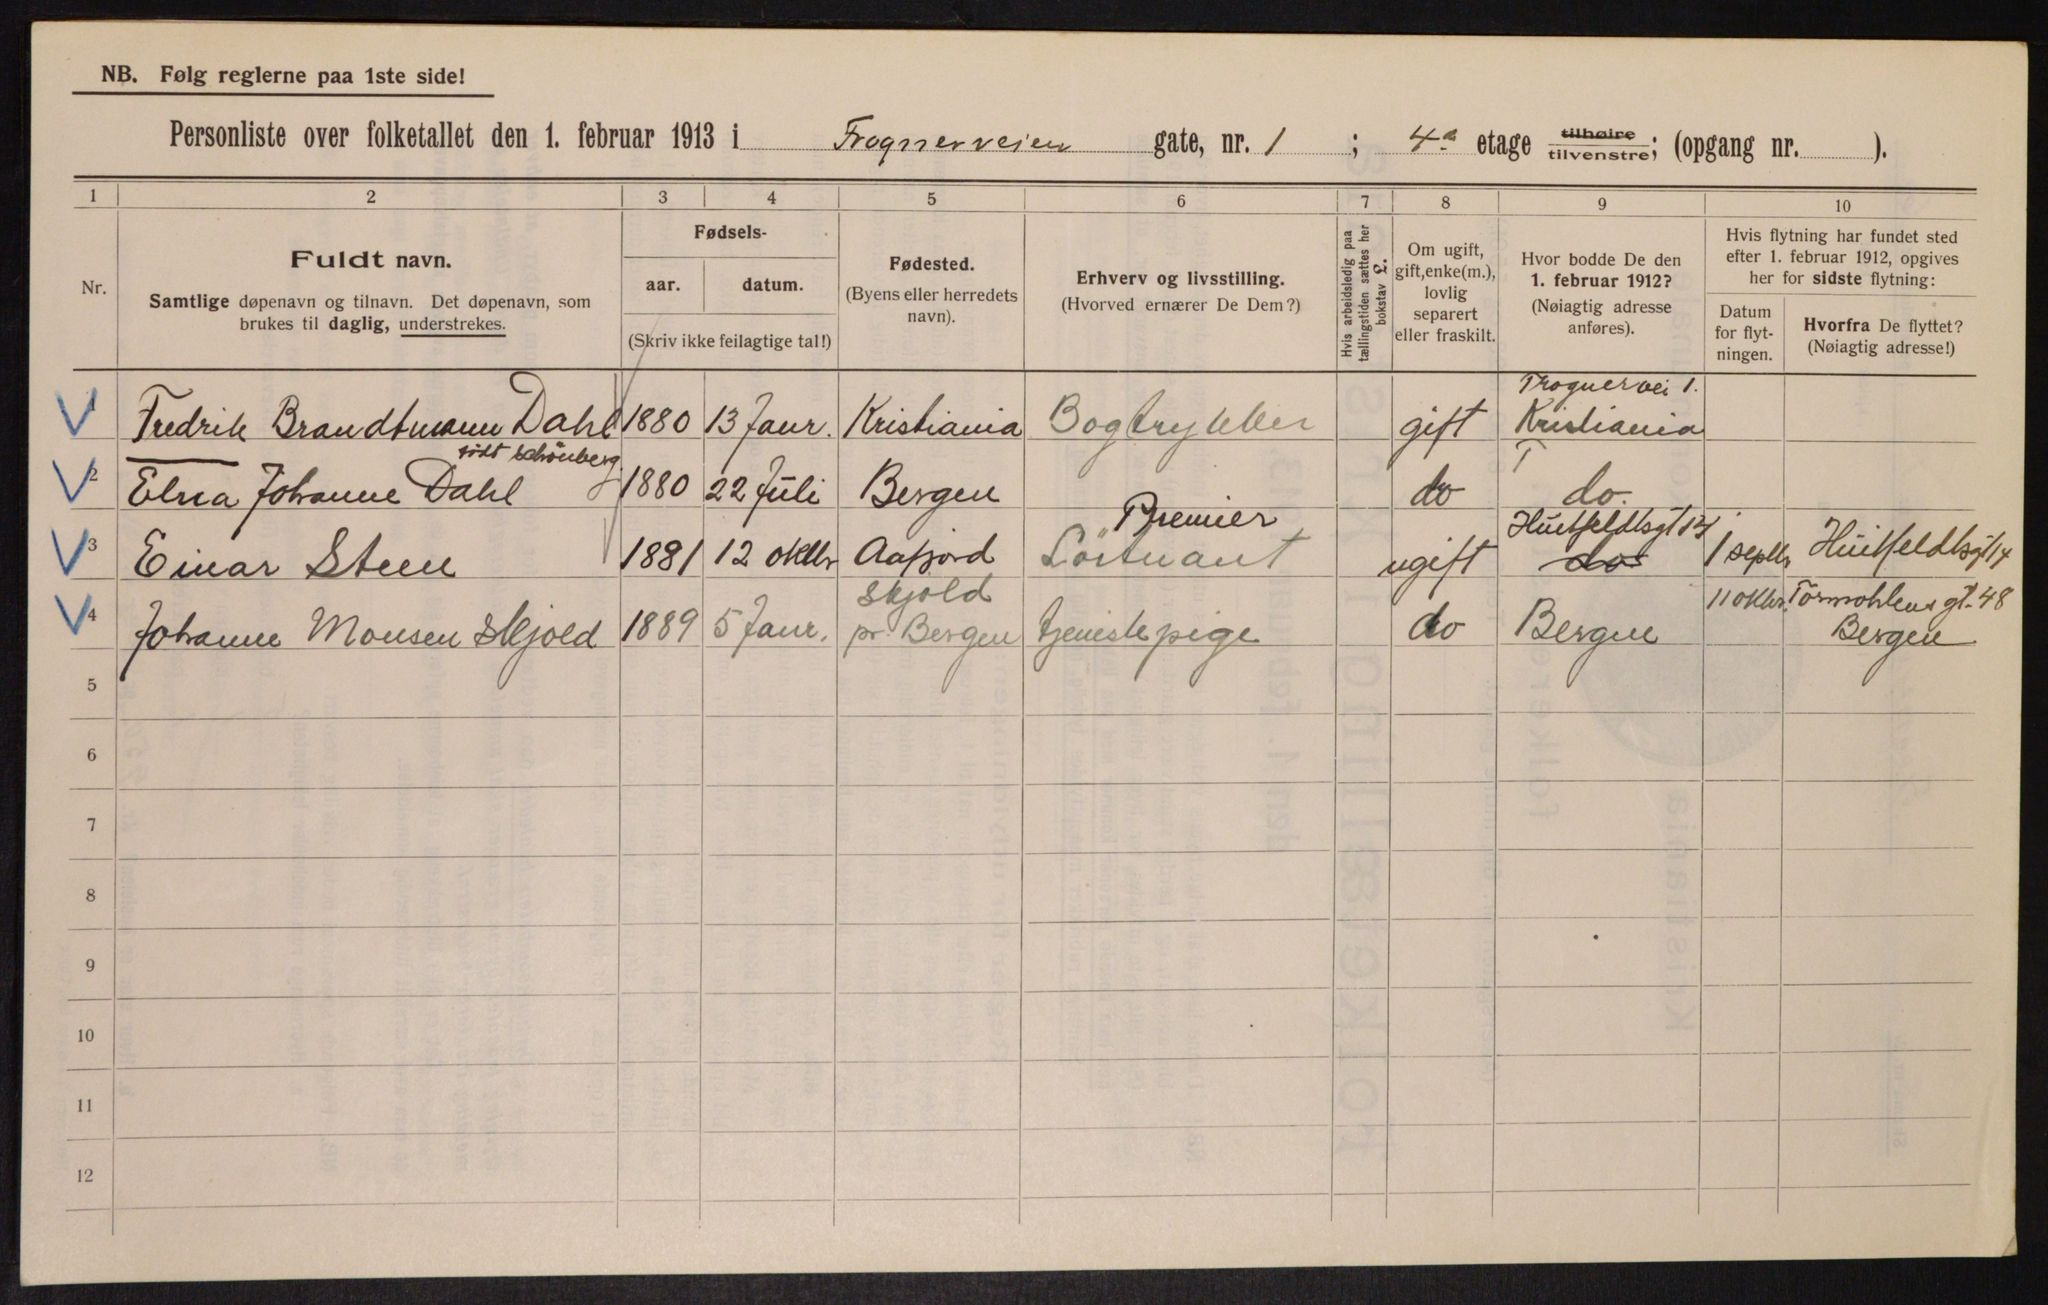 NB. Følg reglerne paa 1ste side!
Personliste over folketallet den 1. februar 1913 i Frognerveien gate, nr. 1 ; 4a etage tilhøire tilvenstre; (opgang nr. ).
1 2 3 4 5 6 7 8 9 10
Nr.
Fuldt navn.
Samtlige døpenavn og tilnavn. Det døpenavn, som
brukes til daglig, understrekes.
Fødsels-
aar. datum.
(Skriv ikke feilagtige tal!)
Fødested.
(Byens eller herredets
navn).
Erhverv og livsstilling.
(Hvorved ernærer De Dem?)
Hvis arbeidsledig paa
tællingstiden sættes her
bokstav L.
Om ugift,
gift, enke(m.),
lovlig
separert
eller fraskilt.
Hvor bodde De den
1. februar 1912?
(Nøiagtig adresse
anføres).
Hvis flytning har fundet sted
efter 1. februar 1912, opgives
her for sidste flytning:
Datum
for flyt-
ningen.
Hvorfra De flyttet?
(Nøiagtig adresse!)
Frognervei 1.
1 Fredrik Brandtmann Dahl 1880 13 Janr. Kristiania Bogtrykker gift Kristiania
født Schönberg
2 Elna Johanne Dahl 1880 22 Juli Bergen do do.
Premier Huitfeldtsgt 14
3 Einar Steen 1881 12 oktbr Aafjord Löitnant ugift do 1 septbr Huitfeldtsgt 14
Skjold 11 oktbr. Tormohlens gt. 48
4 Johanne Monsen Skjold 1889 5 Janr. pr. Bergen tjenestepige do Bergen Bergen
5
6
7
8
9
10
11
12